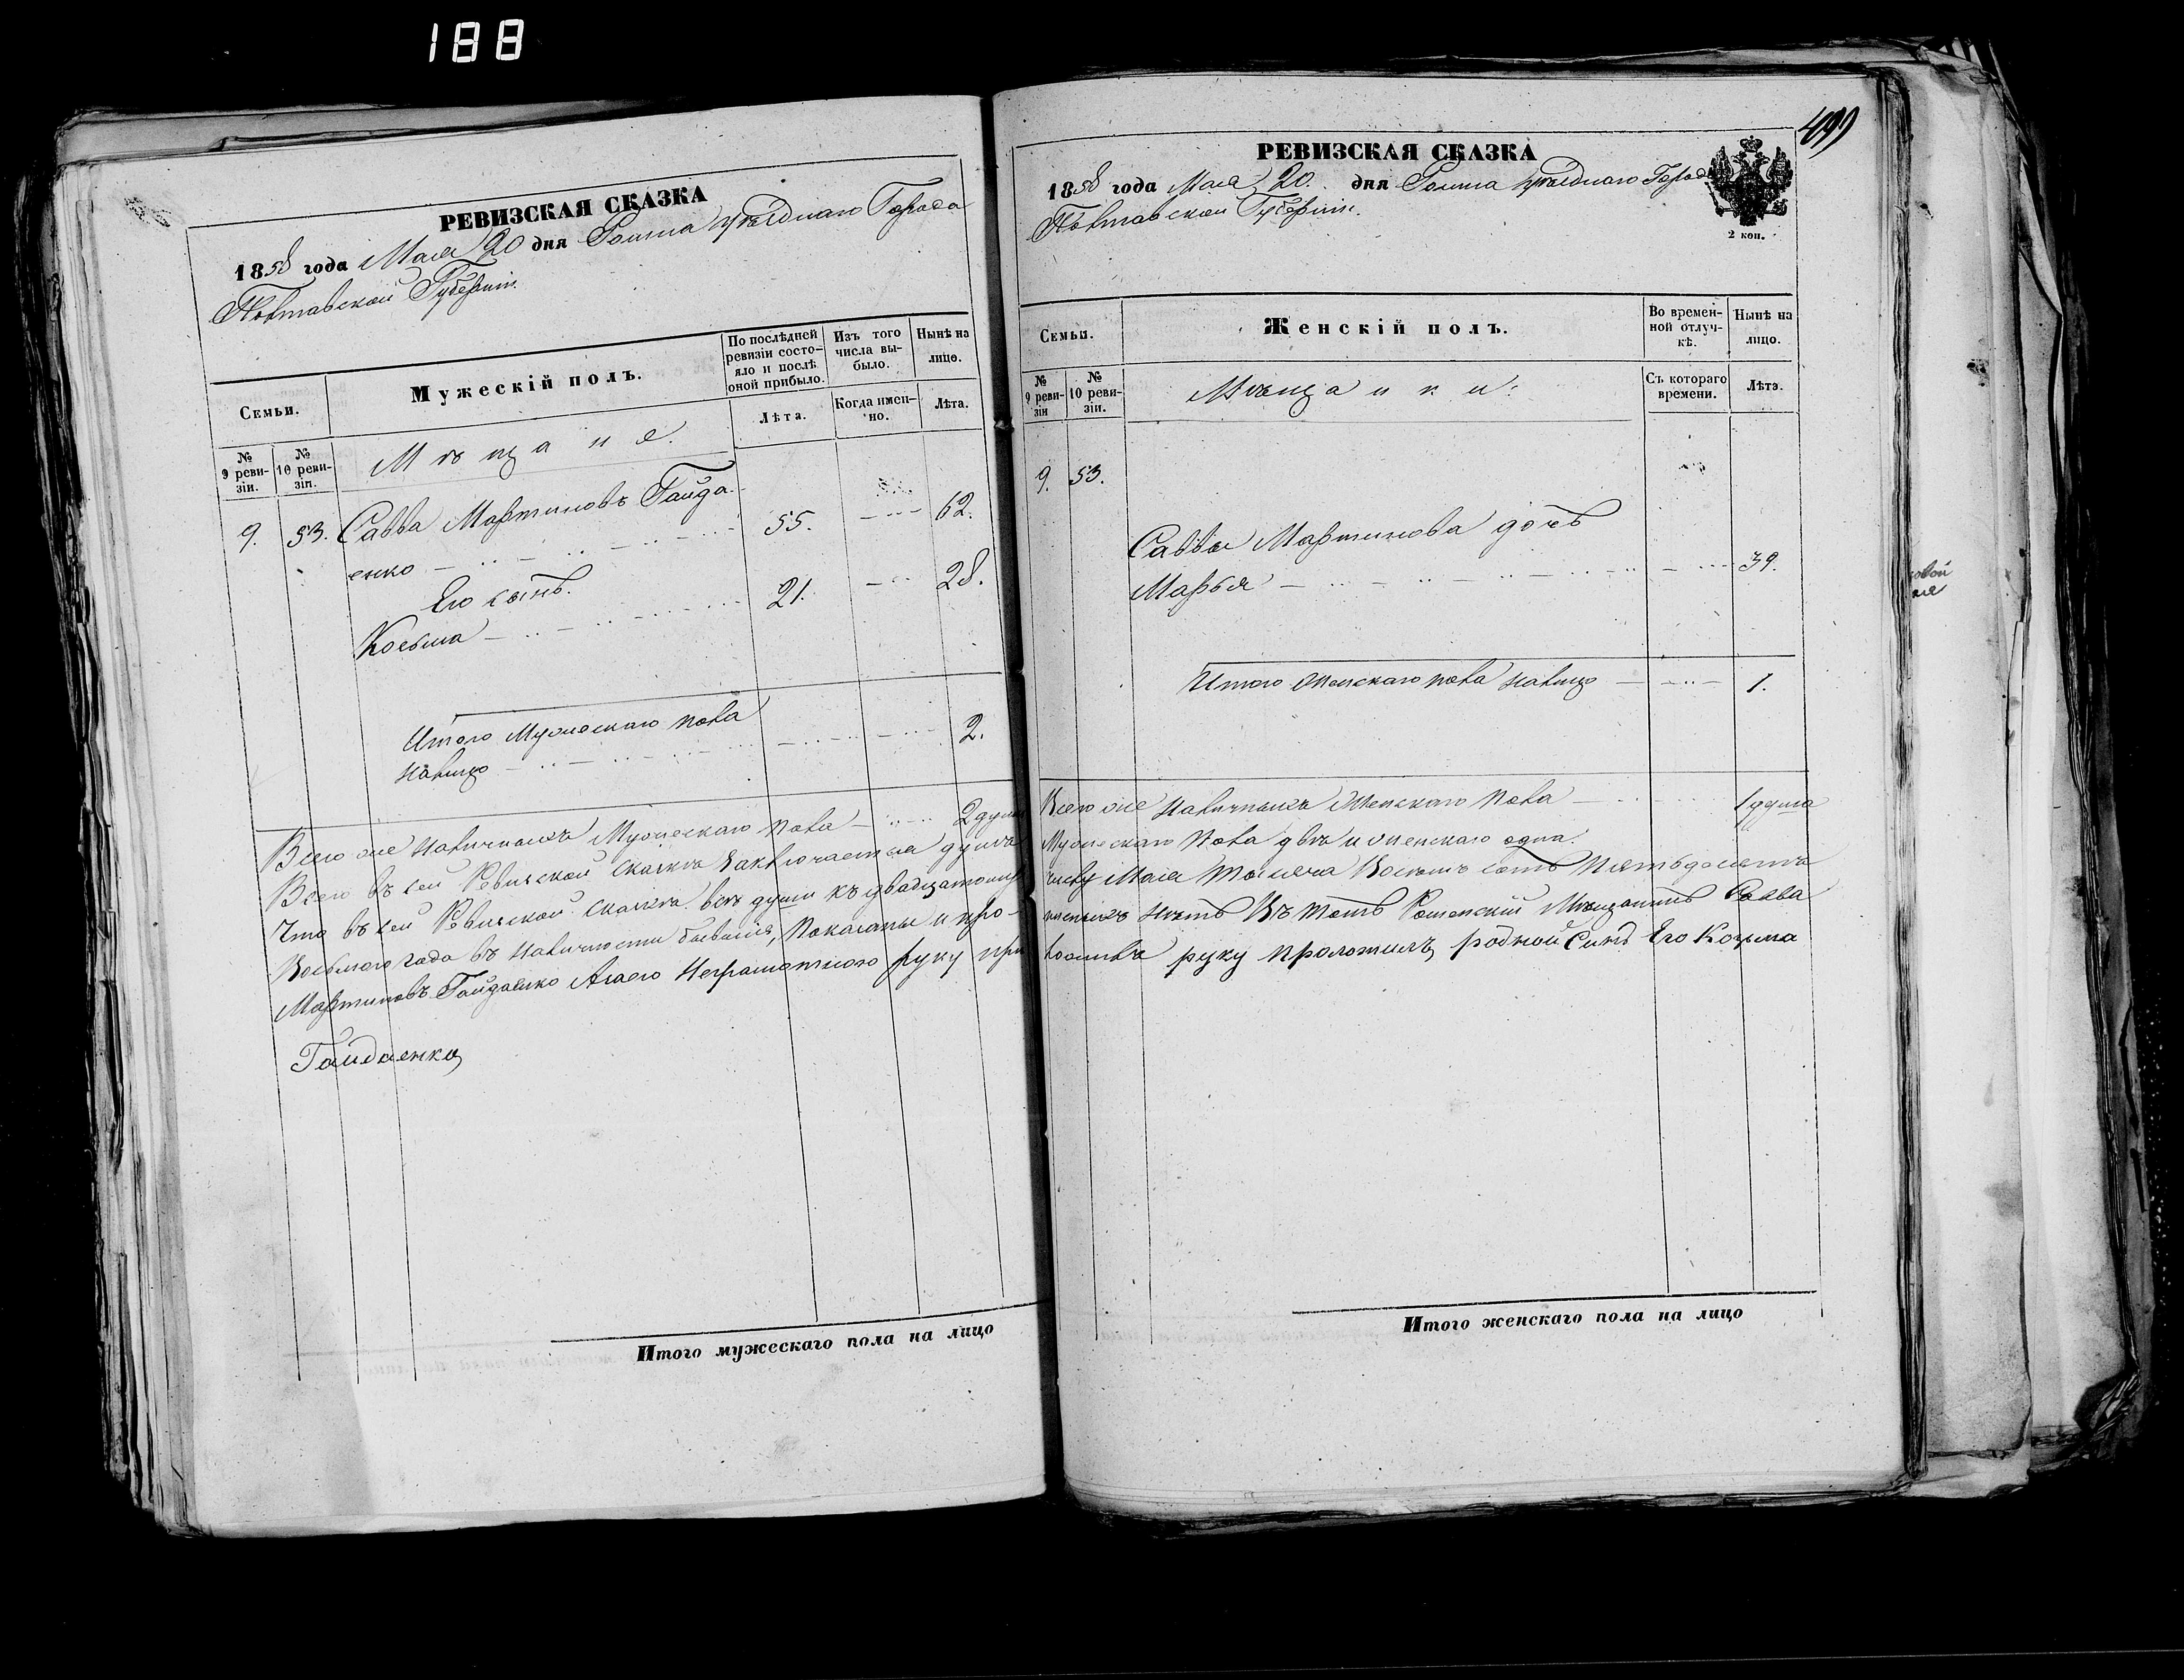 188
РЕВИЗСКАЯ СКАЗКА
1858 года Мая 20 дня Ромна уѣзднаго Города
Полтавской Губерніи.
Семьи.
Мужескій полъ.
По послѣдней ревизіи состояло и послѣ оной прибыло.
Изъ того числа выбыло.
Нынѣ на лицо.
№ 9 ревизіи.
№ 10 ревизіи.
Мѣщане.
Лѣта.
Когда именно.
Лѣта.
9. 53. Савва Мартиновъ Гайда-
енко 55. 62.
Его сынъ.
Косьма 21. 28.
Итого Мужескаго пола
налицо 2.
Всего же наличныхъ Мужескаго пола 2 души
Всего въ сей Ревизской сказкѣ заключается душъ
Что въ сей Ревизской сказкѣ всѣ души къ двадцатому
Восьмаго года въ наличности бывшія, показаны и про-
Мартиновъ Гайдаенко А за его неграмотного руку при
Гайдаенко
Итого мужескаго пола на лицо
499
РЕВИЗСКАЯ СКАЗКА
1858 года Мая 20. дня Ромна уѣзднаго Города
Полтавской Губерніи.
2 коп.
Семьи.
Женскій полъ.
Во временной отлучкѣ.
Нынѣ на лицо.
№ 9 ревизіи
№ 10 ревизіи.
Мѣщанки:
Съ котораго времени.
Лѣта.
9. 53.
Саввы Мартинова дочь
Марья 39.
Итого Женскаго пола налицо 1.
Всего же наличныхъ Женскаго пола 1 душа
Мужескаго пола двѣ и женскаго одна.
числу Мая Тысяча Восемь сотъ Пятьдесятъ
писныхъ нѣтъ Въ томъ Роменскій Мѣщанинъ Савва
руку проложилъ родной Синъ Его Козьма
Итого женскаго пола на лицо